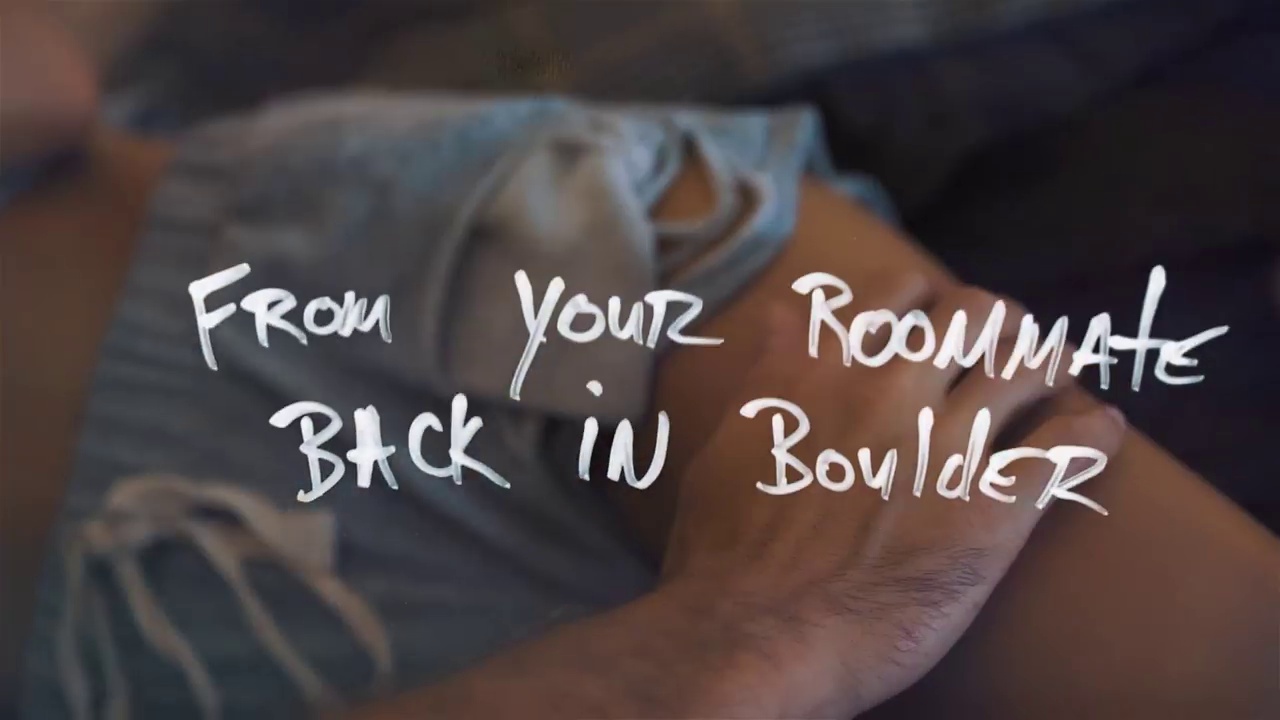 FROM YOUR ROOMMATE
BACK IN BOULDER